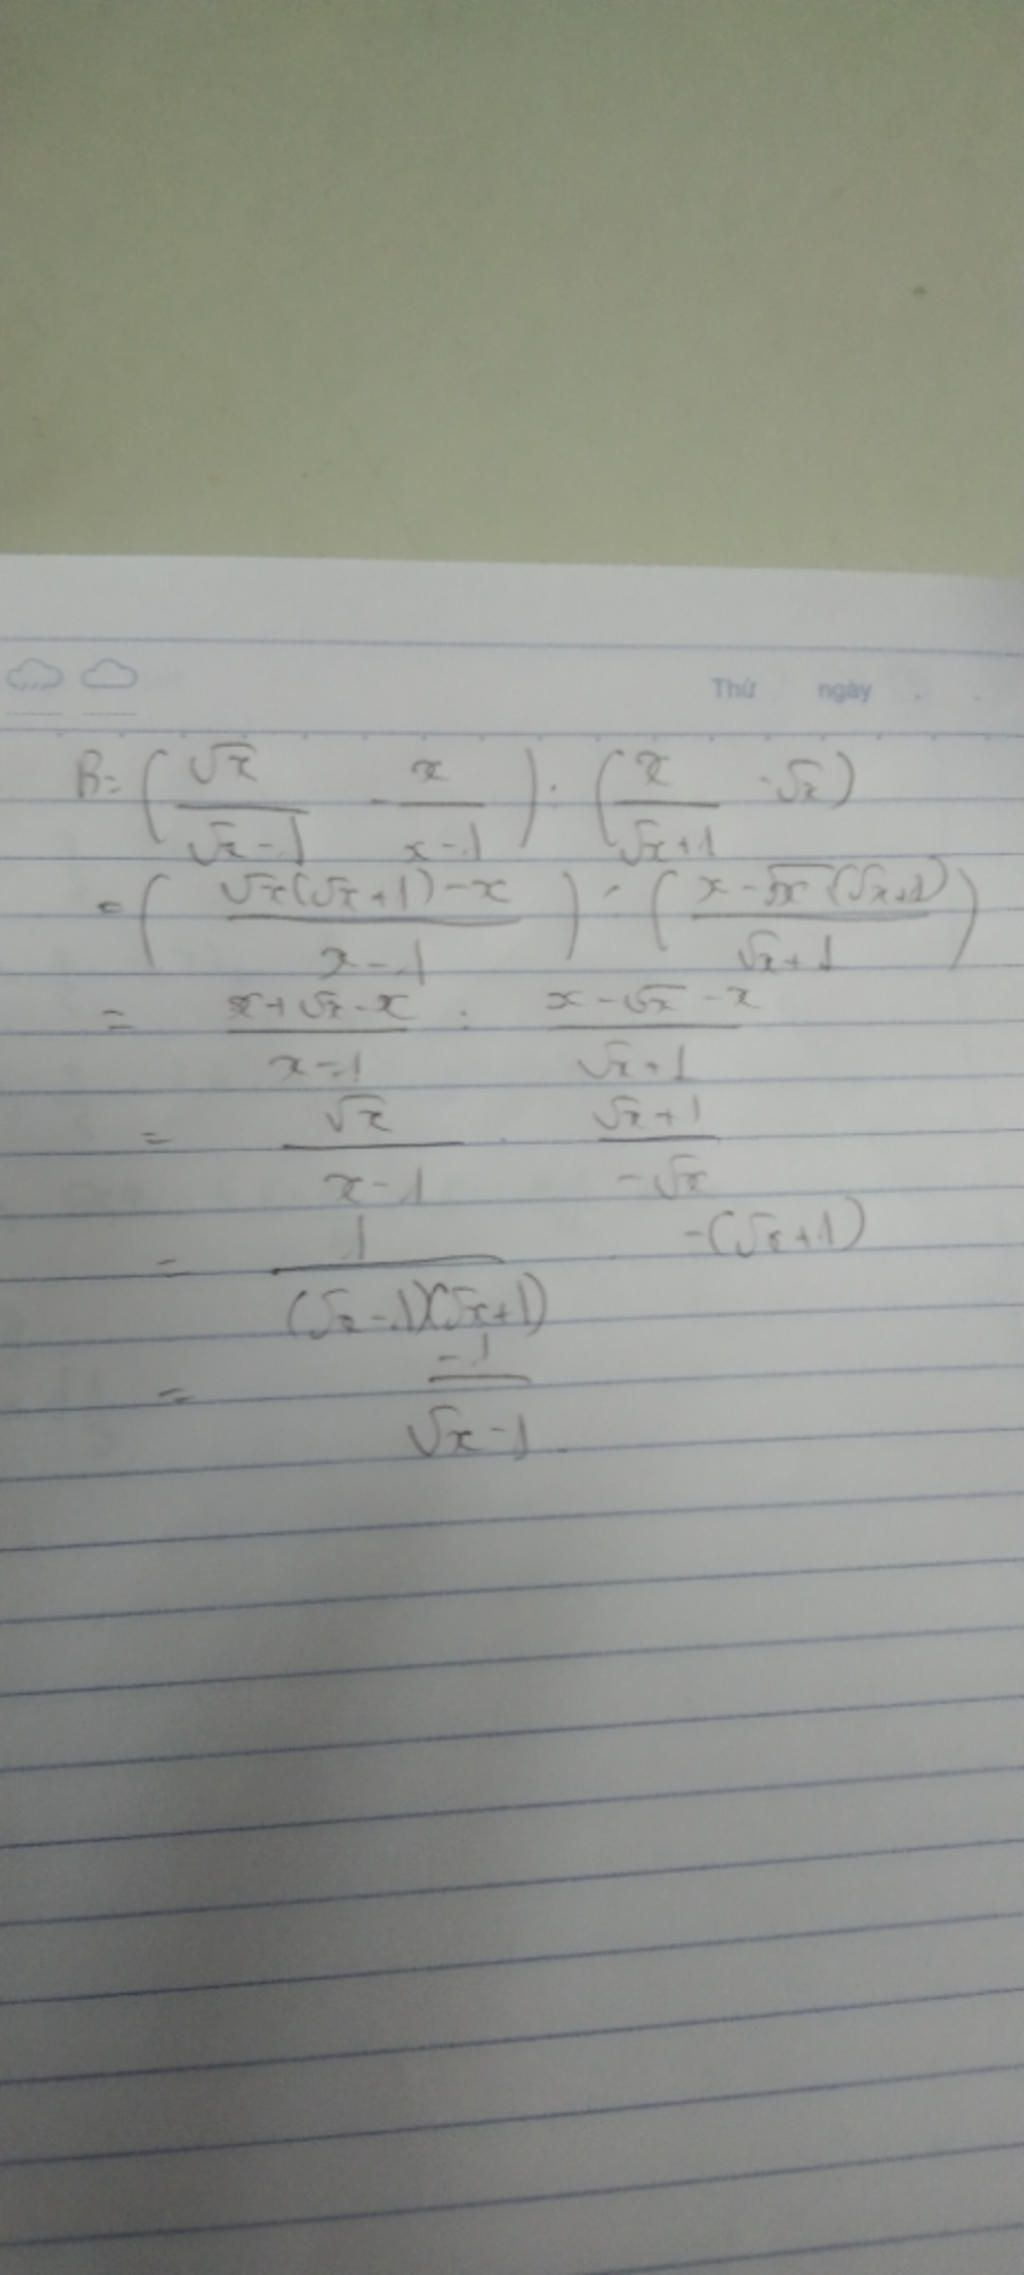 Thứ ngày
B = (√x/(√x-1) - x/(x-1)) : (x/(√x+1) - √x)
= ((√x(√x+1)-x)/(x-1)) : ((x-√x(√x+1))/(√x+1))
= (x+√x-x)/(x-1) : (x-√x-x)/(√x+1)
= √x/(x-1) . (√x+1)/(-√x)
= 1/((√x-1)(√x+1)) . -(√x+1)
= -1/(√x-1).